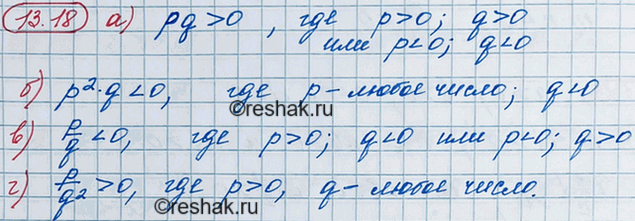 13.18 а) pq > 0 , где p > 0; q > 0
или p < 0; q < 0
б) p² · q < 0, где p – любое число; q < 0
©reshak.ru
в) p/q < 0, где p > 0; q < 0 или p < 0; q > 0
г) p/q² > 0, где p > 0, q – любое число.
©reshak.ru